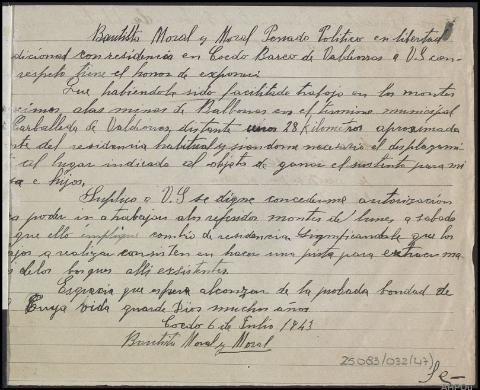 Bautista Moral y Moral Penado Politico en libertad
dicional con residencia en Coedo Barco de Valdeorras a V.S con
respeto tiene el honor de exponer:
Que habiendole sido facilitado trabajo en los montes
cimos a las minas de Balborras en el termino municipal
Carballeda de Valdeorras, distante unos 28 kilometros aproximada
te del residencia habitual y siendome necesario el desplazarmi
al lugar indicado el objeto de ganar el sustento para mi
sa e hijos,
Suplica a V.S se digne concederme autorización
poder ir a trabajar a los referidos montes de lunes a sabado
que ello implique cambio de residencia, significandole que los
ajos a realizar consisten en hacer una pista para extraer ma
s de los bosques alli exsistentes.
Es gracia que espera alcanzar de la probada bondad de
Cuya vida guarde Dios muchos años
Coedo 6 de Julio 1943
Bautista Moral y Moral
25083/032(47)